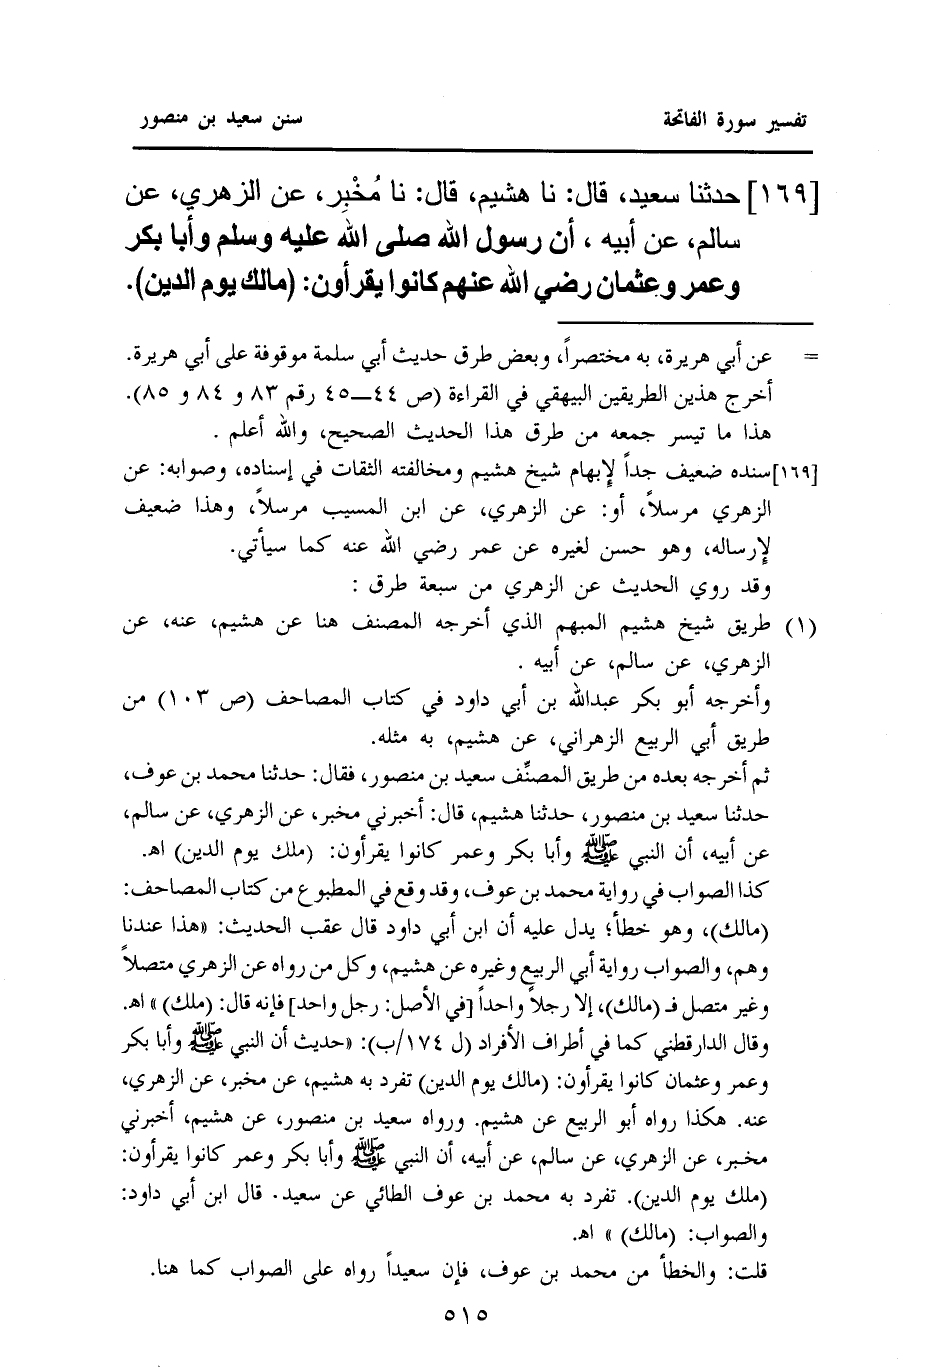 تفسير سورة الفاتحة
سنن سعيد بن منصور
[١٦٩] حدثنا سعيد، قال: نا هشيم، قال: نا مُخْبِر، عن الزهري، عن
سالم، عن أبيه ، أن رسول الله صلى الله عليه وسلم وأبا بكر
وعمر وعثمان رضي الله عنهم كانوا يقرأون: (مالك يوم الدين).
= عن أبي هريرة، به مختصراً، وبعض طرق حديث أبي سلمة موقوفة على أبي هريرة.
أخرج هذين الطريقين البيهقي في القراءة (ص ٤٤ــ٤٥ رقم ٨٣ و ٨٤ و ٨٥).
هذا ما تيسر جمعه من طرق هذا الحديث الصحيح، والله أعلم .
[١٦٩] سنده ضعيف جداً لإبهام شيخ هشيم ومخالفته الثقات في إسناده، وصوابه: عن
الزهري مرسلاً، أو: عن الزهري، عن ابن المسيب مرسلاً، وهذا ضعيف
لإرساله، وهو حسن لغيره عن عمر رضي الله عنه كما سيأتي.
وقد روي الحديث عن الزهري من سبعة طرق :
(١) طريق شيخ هشيم المبهم الذي أخرجه المصنف هنا عن هشيم، عنه، عن
الزهري، عن سالم، عن أبيه .
وأخرجه أبو بكر عبدالله بن أبي داود في كتاب المصاحف (ص ١٠٣) من
طريق أبي الربيع الزهراني، عن هشيم، به مثله.
ثم أخرجه بعده من طريق المصنِّف سعيد بن منصور، فقال: حدثنا محمد بن عوف،
حدثنا سعيد بن منصور، حدثنا هشيم، قال: أخبرني مخبر، عن الزهري، عن سالم،
عن أبيه، أن النبي ﷺ وأبا بكر وعمر كانوا يقرأون: (ملك يوم الدين) اهـ.
كذا الصواب في رواية محمد بن عوف، وقد وقع في المطبوع من كتاب المصاحف:
(مالك)، وهو خطأ؛ يدل عليه أن ابن أبي داود قال عقب الحديث: «هذا عندنا
وهم، والصواب رواية أبي الربيع وغيره عن هشيم، وكل من رواه عن الزهري متصلاً
وغير متصل فـ (مالك)، إلا رجلاً واحداً [في الأصل: رجل واحد] فإنه قال: (ملك) » اهـ.
وقال الدارقطني كما في أطراف الأفراد (ل ١٧٤/ب): «حديث أن النبي ﷺ وأبا بكر
وعمر وعثمان كانوا يقرأون: (مالك يوم الدين) تفرد به هشيم، عن مخبر، عن الزهري،
عنه. هكذا رواه أبو الربيع عن هشيم. ورواه سعيد بن منصور، عن هشيم، أخبرني
مخبر، عن الزهري، عن سالم، عن أبيه، أن النبي ﷺ وأبا بكر وعمر كانوا يقرأون:
(ملك يوم الدين). تفرد به محمد بن عوف الطائي عن سعيد. قال ابن أبي داود:
والصواب: (مالك) » اهـ.
قلت: والخطأ من محمد بن عوف، فإن سعيداً رواه على الصواب كما هنا.
٥١٥